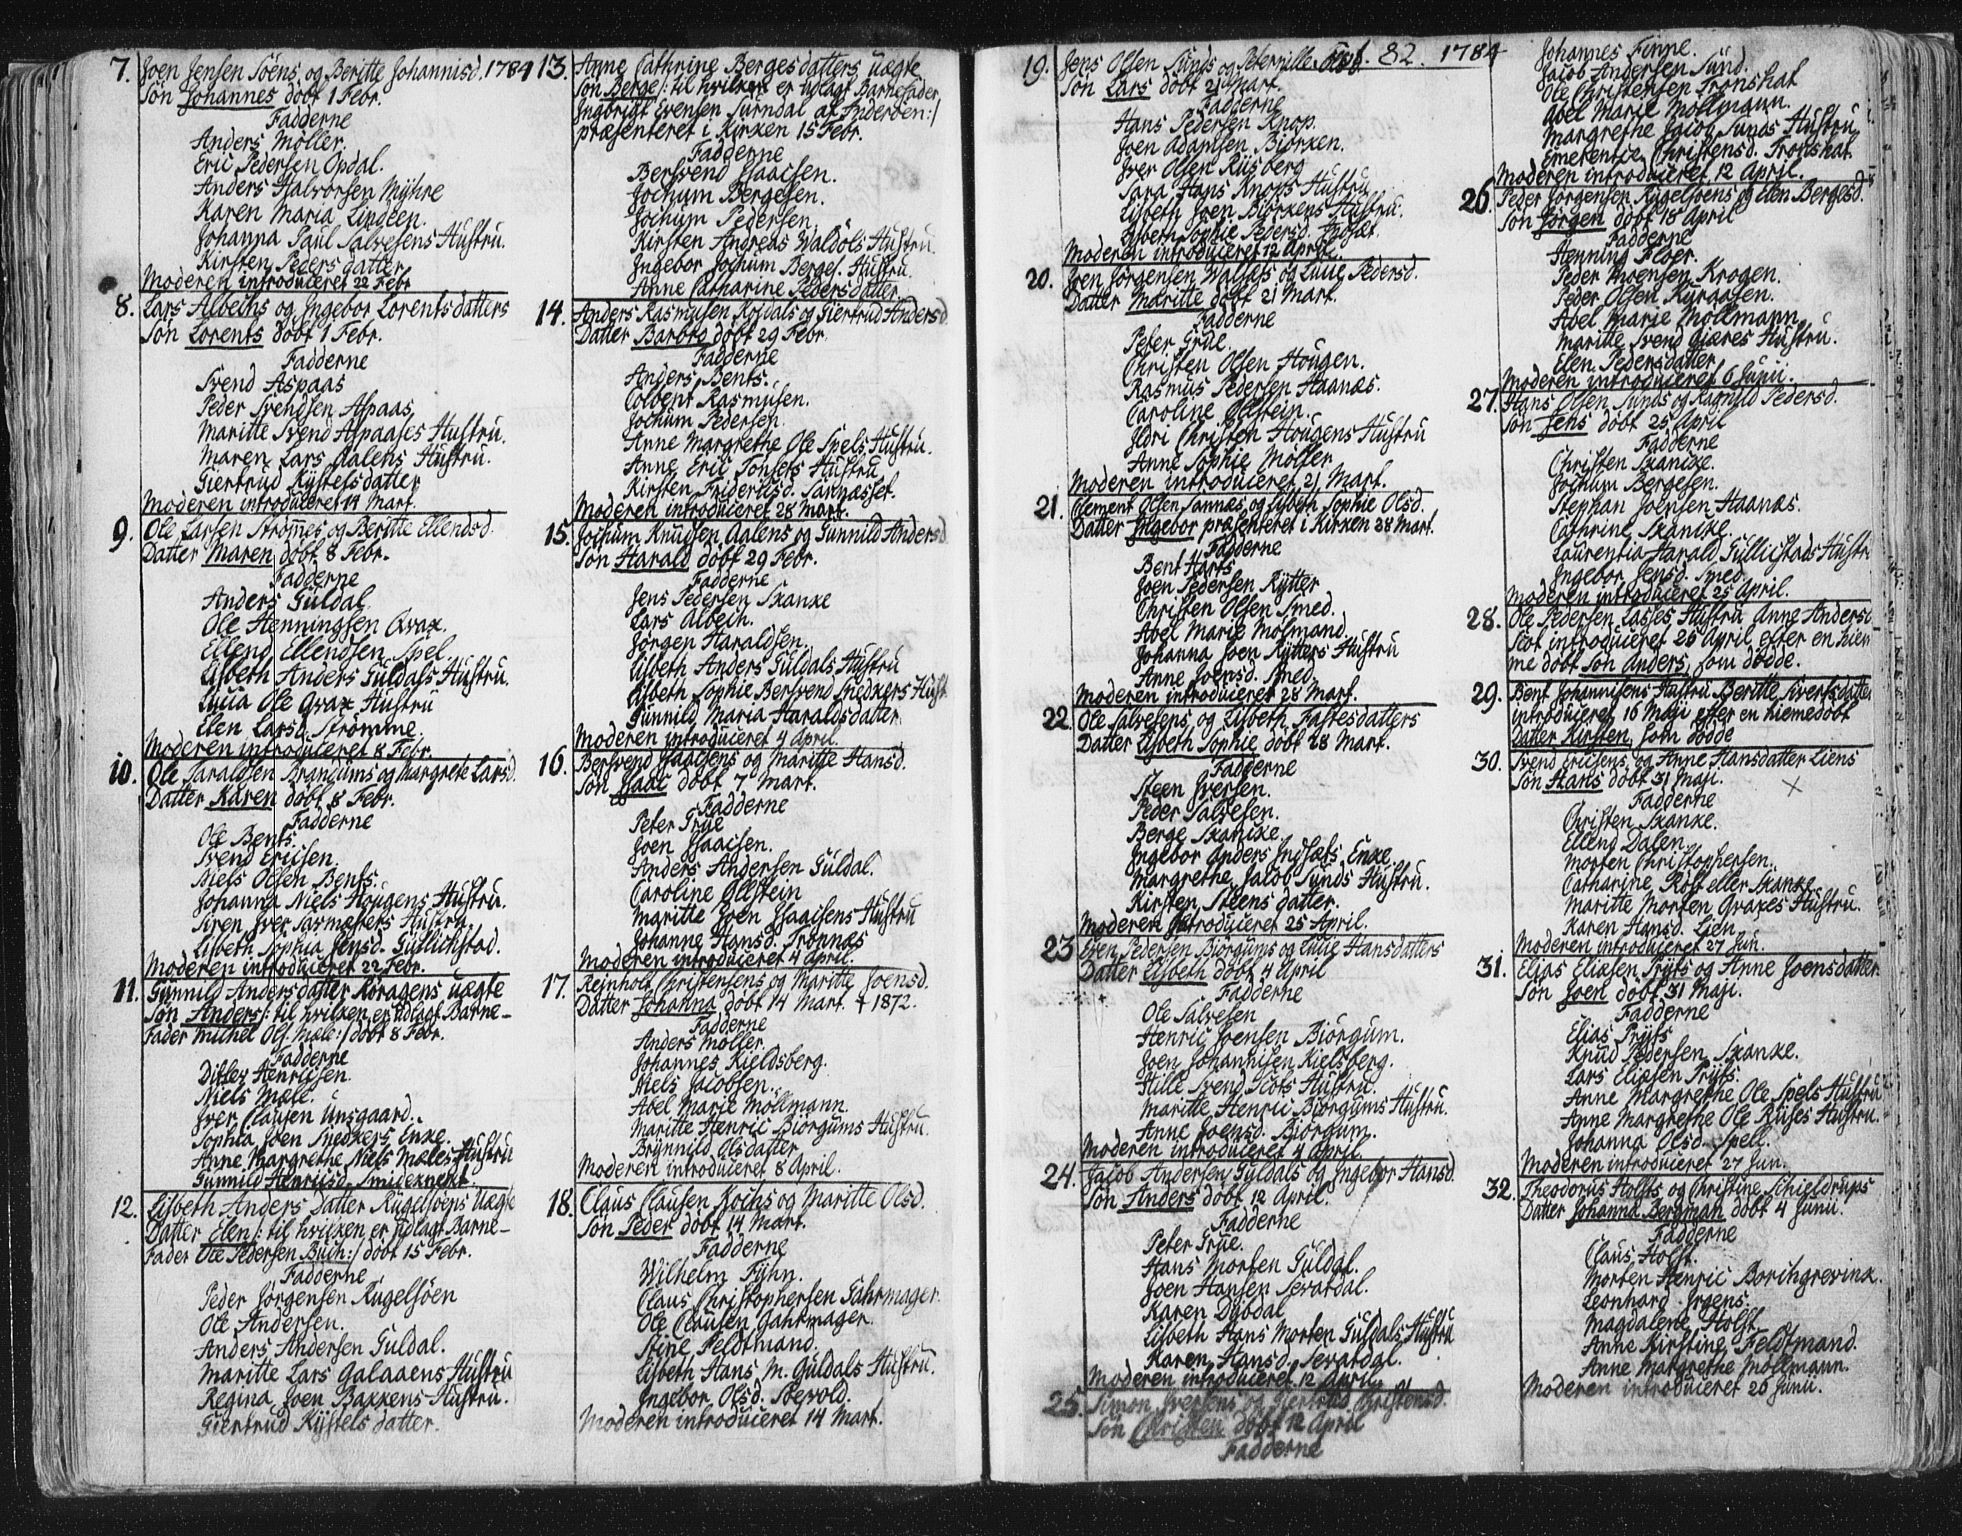 7. Joen Jensen Söens og Beritte Johannisd. 1784
Sön Johannes döbt 1 Febr.
Fadderne
Anders Möller.
Eric Pedersen Opdal.
Anders Halvorsen Myhre
Karen Maria Lindeen.
Johanna Paul Salvesens Hustru.
Kirsten Pedersdatter
Moderen introduceret 22 Febr
8. Lars Albechs og Ingebor Lorentsdatters
Sön Lorents döbt 1 Febr.
Fadderne
Svend Aspaas
Peder Svendsen Aspaas
Maritte Svend Aspaases Hustru.
Maren Lars Aalens Hustru.
Giertrud Kystelsdatter
Moderen introduceret 14 Mart.
9. Ole Larsen Strömmes og Beritte Ellendsd.
Datter Maren döbt 8 Febr.
Fadderne
Anders Güldal
Ole Henningsen Qvax.
Ellend Ellendsen Spel
Lisbeth Anders Güldals Hustru.
Lucia Ole Qvax Hustru
Elen Larsd. Strömme.
Moderen introduceret 8 Febr.
10. Ole Taraldsen Brandums og Margrete Larsd.
Datter Karen döbt 8 Febr.
Fadderne
Ole Bents.
Svend Ericsen.
Niels Olsen Bents.
Johanna Niels Hougens Hustru.
Siren Iver Hustru.
Lisbeth Sophia Jensd. Gullichstad.
Moderen introduceret 22 Febr.
11. Gunnild Andersdatter Röragens uægte
Sön Anders /: til hvilken er udlagt Barne-
Fader Michel Ols. Mæle :/ döbt 8 Febr.
Fadderne
Ditlev Henricsen.
Niels Mæle.
Iver Clausen Unsgaard.
Sophia Joen Snedkers Enke.
Anne Margrethe Niels Mæles Hustru
Gunnild Henricsd. Smideknekt.
12. Lisbeth Anders Datter Kugelsöens Uægte
Datter Elen /: til hvilken er udlagt Barne-
Fader Ole Pedersen Buch :/ döbt 15 Febr.
Fadderne
Peder Jörgensen Kugelsöen
Ole Andersen.
Anders Andersen Güldal.
Maritte Lars Galaaens Hustru
Regina Joen Bakkens Hustru.
Giertrud Kystelsdatter.
13. Anne Cathrine Bergesdatters uægte
Sön Berge /: til hvilken er udlagt Barnefader
Ingbrigt Evensen Surndal af Inderöen :/
præsenteret i Kirken 15 Febr.
Fadderne
Bersvend Isaacsen.
Jochum Bergesen.
Jochum Pedersen.
Kirsten Andreas Waldols Hustru.
Ingebor Jochum Berges. Hustru.
Anne Catharine Pedersdatter
14. Anders Rasmusen Kojdals og Giertrud Andersd
Datter Barbro döbt 29 Febr.
Fadderne
Anders Bents.
Colbent Rasmusen.
Jochum Pedersen.
Anne Margrethe Ole Spels Hustru.
Anne Eric Tonsets Hustru
Kirsten Fridericsd. Sarnæsset.
Moderen introduceret 28 Mart.
15. Jochum Knudsen Aalens og Gunnild Andersd
Sön Harald döbt 29 Febr.
Fadderne
Jens Pedersen Skanke
Lars Albech.
Jörgen Haraldsen.
Lisbeth Anders Güldals Hustru
Lisbeth Sophie Bersvend Snedkers Hust
Gunnild Maria Haraldsdatter.
Moderen introduceret 4 April.
16. Bersvend Isaacsens og Maritte Hansd.
Sön Isaac döbt 7 Mart.
Fadderne
Peter Grue
Joen Isaacsen.
Anders Andersen Güldal.
Caroline Ollstein
Maritte Joen Isaacsens Hustru
Johanne Hansd. Tronnæs
Moderen introduceret 4 April.
17. Reinholt Christensens og Maritte Joensd.
Datter Johanna döbt 14 Mart. † 1872.
Fadderne
Anders Möller.
Johannes Kieldsberg.
Niels Jacobsen.
Abel Marie Möllmann
Maritte Henric Biörgums Hustru.
Brynnild Olsdatter
Moderen introduceret 8 April.
18. Claus Clausen Kochs og Maritte Olsd.
Sön Peder döbt 14 Mart.
Fadderne
Wilhelm Fyhn.
Claus Christophersen Gahrmager.
Ole Clausen Gahrmager.
Stine Feldtmand.
Lisbeth Hans M. Güldals Hustru.
Ingebor Olsd. Skevold.
Moderen introduceret 14 Mart.
19. Jens Olsen Sunds og Pernille Fol. 82. 1784
Sön Lars döbt 21 Mart.
Fadderne
Hans Pedersen Knop.
Joen Adamsen Biörken.
Iver Olsen Rusberg
Sara Hans Knops Hustru
Lisbeth Joen Biörkens Hustru.
Lisbeth Sophie Pedersd.
Moderen introduceret 12 April.
20. Iven Jörgensen og Lucie Pedersd.
Datter Maritte döbt 21 Mart.
Fadderne
Peter Grue.
Christen Olsen Hougen.
Rasmus Pedersen Haanæs.
Caroline Ollstein.
Ildri Christen Hougens Hustru
Anne Sophie Möller
Moderen introduceret 21 Mart.
21. Clement Olsen Sannæs og Lisbeth Sophie Olsd.
Datter Ingebor præsenteret i Kirken 28 Mart.
Fadderne
Bent Harts
Joen Pedersen Rytter
Christen Olsen Smed.
Abel Marie Mölmand
Johanna Joen Rytters Hustru
Anne Joensd. Smed.
Moderen introduceret 28 Mart.
22 Ole Salvesens og Lisbeth Fastesdatters
Datter Lisbeth Sophie döbt 28 Mart.
Fadderne
Steen Iversen.
Peder Salvesen.
Berge Skancke
Ingebor Anders Indsæts Enke
Margrethe Jacob Sunds Hustru.
Kirsten Steensdatter.
Moderen introduceret 25 April.
23 Even Pedersen Biörgums og Lucie Hansdatters
Datter Lisbeth döbt 4 April
Fadderne
Ole Salvesen
Henric Joensen Biörgum.
Joen Johannisen Kielsberg.
Hille Svend Scots Hustru.
Maritte Henric Biörgums Hustru.
Anne Joensd. Biörgum.
Moderen introduceret 4 April.
24. Jacob Andersen Güldals og Ingebor Hansd.
Sön Anders döbt 12 April.
Fadderne
Peter Grue.
Hans Morten Güldal.
Joen Hansen Sevatdal.
Karen Dybdal
Lisbeth Hans Morten Güldals Hustru
Karen Hansd. Sevatdal.
Moderen introduceret 12 April.
25. Simon Iversens og Giertrud Christensd.
Sön Christen döbt 12 April
Fadderne
Johannes Finne.
Jacob Andersen Sund.
Ole Christensen Tronshat
Abel Marie Möllmann.
Margrethe Jacob Sunds Hustru
Emerentze Christensd. Tronshat
Moderen introduceret 12 April.
26. Peder Jörgensen Kugelsöens og Elen Bergesd.
Sön Jörgen döbt 18 April
Fadderne
Henning Floer.
Peder Moensen Krogen.
Peder Olsen Kuraasen.
Abel Marie Möllmann
Maritte Svend Giæres Hustru.
Elen Pedersdatter
Moderen introduceret 6 Junii.
27. Hans Olsen Sunds og Ragnild Pedersd.
Sön Jens döbt 25 April
Fadderne
Christen Skancke.
Jochum Bergesen.
Stephan Joensen Haanæs.
Cathrine Skancke
Laurentia Harald Gullichstads Hustr
Ingebor Jensd. Smed
Moderen introduceret 25 April.
28. Ole Pedersen Lasses Hustru Anne Anders
Scot introduceret 26 April efter en hiem
me döbt Sön Anders, som dödde.
29. Bent Johannisens Hustru Beritte Sivertsdatter
introduceret 16 Maji efter en hiemedöbt
Datter Kirsten, som dödde
30. Svend Ericsens og Anne Hansdatter Liens
Sön Hans döbt 31 Maji. ×
Fadderne
Christen Skanke.
Ellend Dalen.
Morten Christophersen.
Catharine Röst eller Skanke
Maritte Morten Qvakes Hustru.
Karen Hansd. Lien.
Moderen introduceret 27 Jun.
31. Elias Eliæsen Pryts og Anne Joensdatter
Sön Joen döbt 31 Maji.
Fadderne
Elias Pryts
Knud Pedersen Skanke.
Lars Eliæsen Pryts.
Anne Margrethe Ole Spels Hustru
Anne Margrethe Ole Ryses Hustru.
Johanna Olsd. Spell.
Moderen introduceret 27 Jun.
32. Theodorus Holsts og Christine Schieldrups
Datter Johanna Bergman döbt 4 Junii.
Fadderne
Claus Holst.
Morten Henric Borchgrevink.
Leonhard Irgens.
Magdalene Holst
Anne Kirstine Feldtmand.
Anne Margrethe Möllmann.
Moderen introduceret 26 Junii.